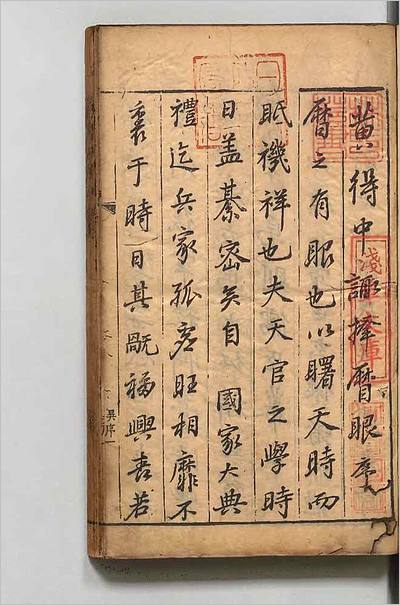 黄得中諏擇曆眼序
曆之有眼也以曙天時而
眂禨祥也夫天官之學時
日盖綦密矣自　國家大典
禮迄兵家孤虛旺相靡不
衷于時日其厩福興喪若
吳序
一
淺
庫